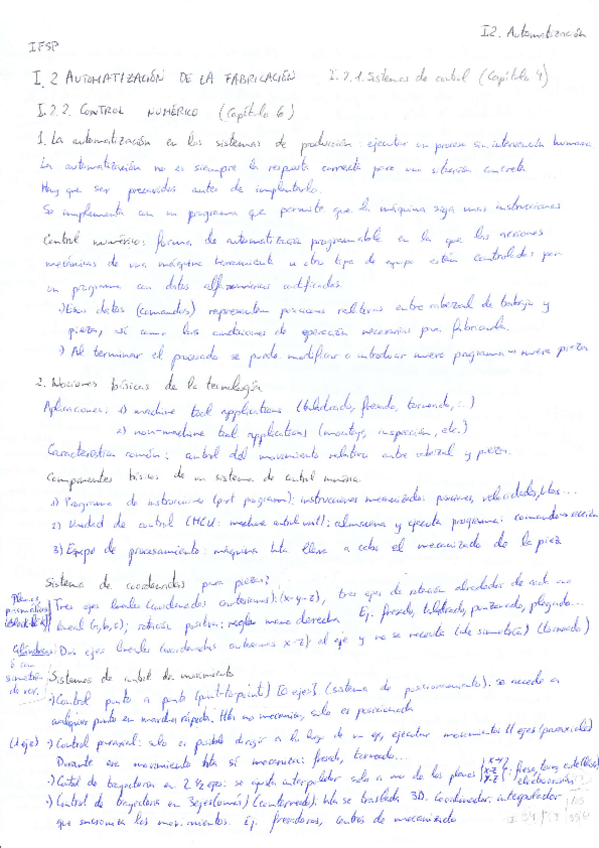 I2. Automatización
IFSP
I.2 AUTOMATIZACIÓN DE LA FABRICACIÓN I.2.1. Sistemas de control (Capítulo 4)
I.2.2. CONTROL NUMÉRICO (Capítulo 6)
1. La automatización en los sistemas de producción: ejecutar un proceso sin intervención humana
La automatización no es siempre la respuesta correcta para una situación concreta
Hay que ser precavidos antes de implantarlo.
Se implementa con un programa que permite que la máquina siga unas instrucciones
Control numérico: forma de automatización programable en la que las acciones
mecánicas de una máquina herramienta u otro tipo de equipo están controladas por
un programa con datos alfanuméricos codificados.
Esos datos (comandos) representan posiciones relativas entre cabezal de trabajo y
pieza, así como las condiciones de operación necesarias para fabricarla.
Al terminar el procesado se puede modificar o introducir nuevo programa → nueva pieza
2. Nociones básicas de la tecnología
Aplicaciones: 1) machine tool applications (taladrado, fresado, torneado, ...)
2) non-machine tool applications (montaje, inspección, etc.)
Característica común: control del movimiento relativo entre cabezal y pieza.
Componentes básicos de un sistema de control numérico
1) Programa de instrucciones (part program): instrucciones mecanizado: posiciones, velocidades, htas...
2) Unidad de control (MCU: machine control unit): almacena y ejecuta programa: comando → acción
3) Equipo de procesamiento: máquina hta lleva a cabo el mecanizado de la pieza
Sistema de coordenadas para piezas:
Planas, prismáticas
Tres ejes lineales (coordenadas cartesianas): (x-y-z), tres ejes de rotación alrededor de cada uno
lineal (a, b, c); rotación positiva: regla mano derecha Ej. fresado, taladrado, punzonado, plegado...
Cilíndricas o con simetría de rev.
Dos ejes lineales (coordenadas cartesianas x-z): el eje y no se necesita (de simetría) (torneado)
Sistemas de control de movimiento
Control punto a punto (point-to-point) [0 ejes] (sistema de posicionamiento): se accede a
cualquier punto en marcha rápida. Hta no mecaniza, solo es posicionada
(1 eje) Control paraxial: solo es posible dirigir a lo largo de un eje, ejecutar movimientos // ejes (paraxiales)
Durante ese movimiento hta sí mecaniza: fresado, torneado...
Control de trayectoria en 2 1/2 ejes: se ajusta interpolador solo a uno de los planos x-y x-z y-z: fresa, torno,
Control de trayectoria en 3 ejes (o más) (contorneado): hta se traslada 3D. Coordinador: interpolador
que sincroniza los movimientos. Ej. fresadoras, centros de mecanizado